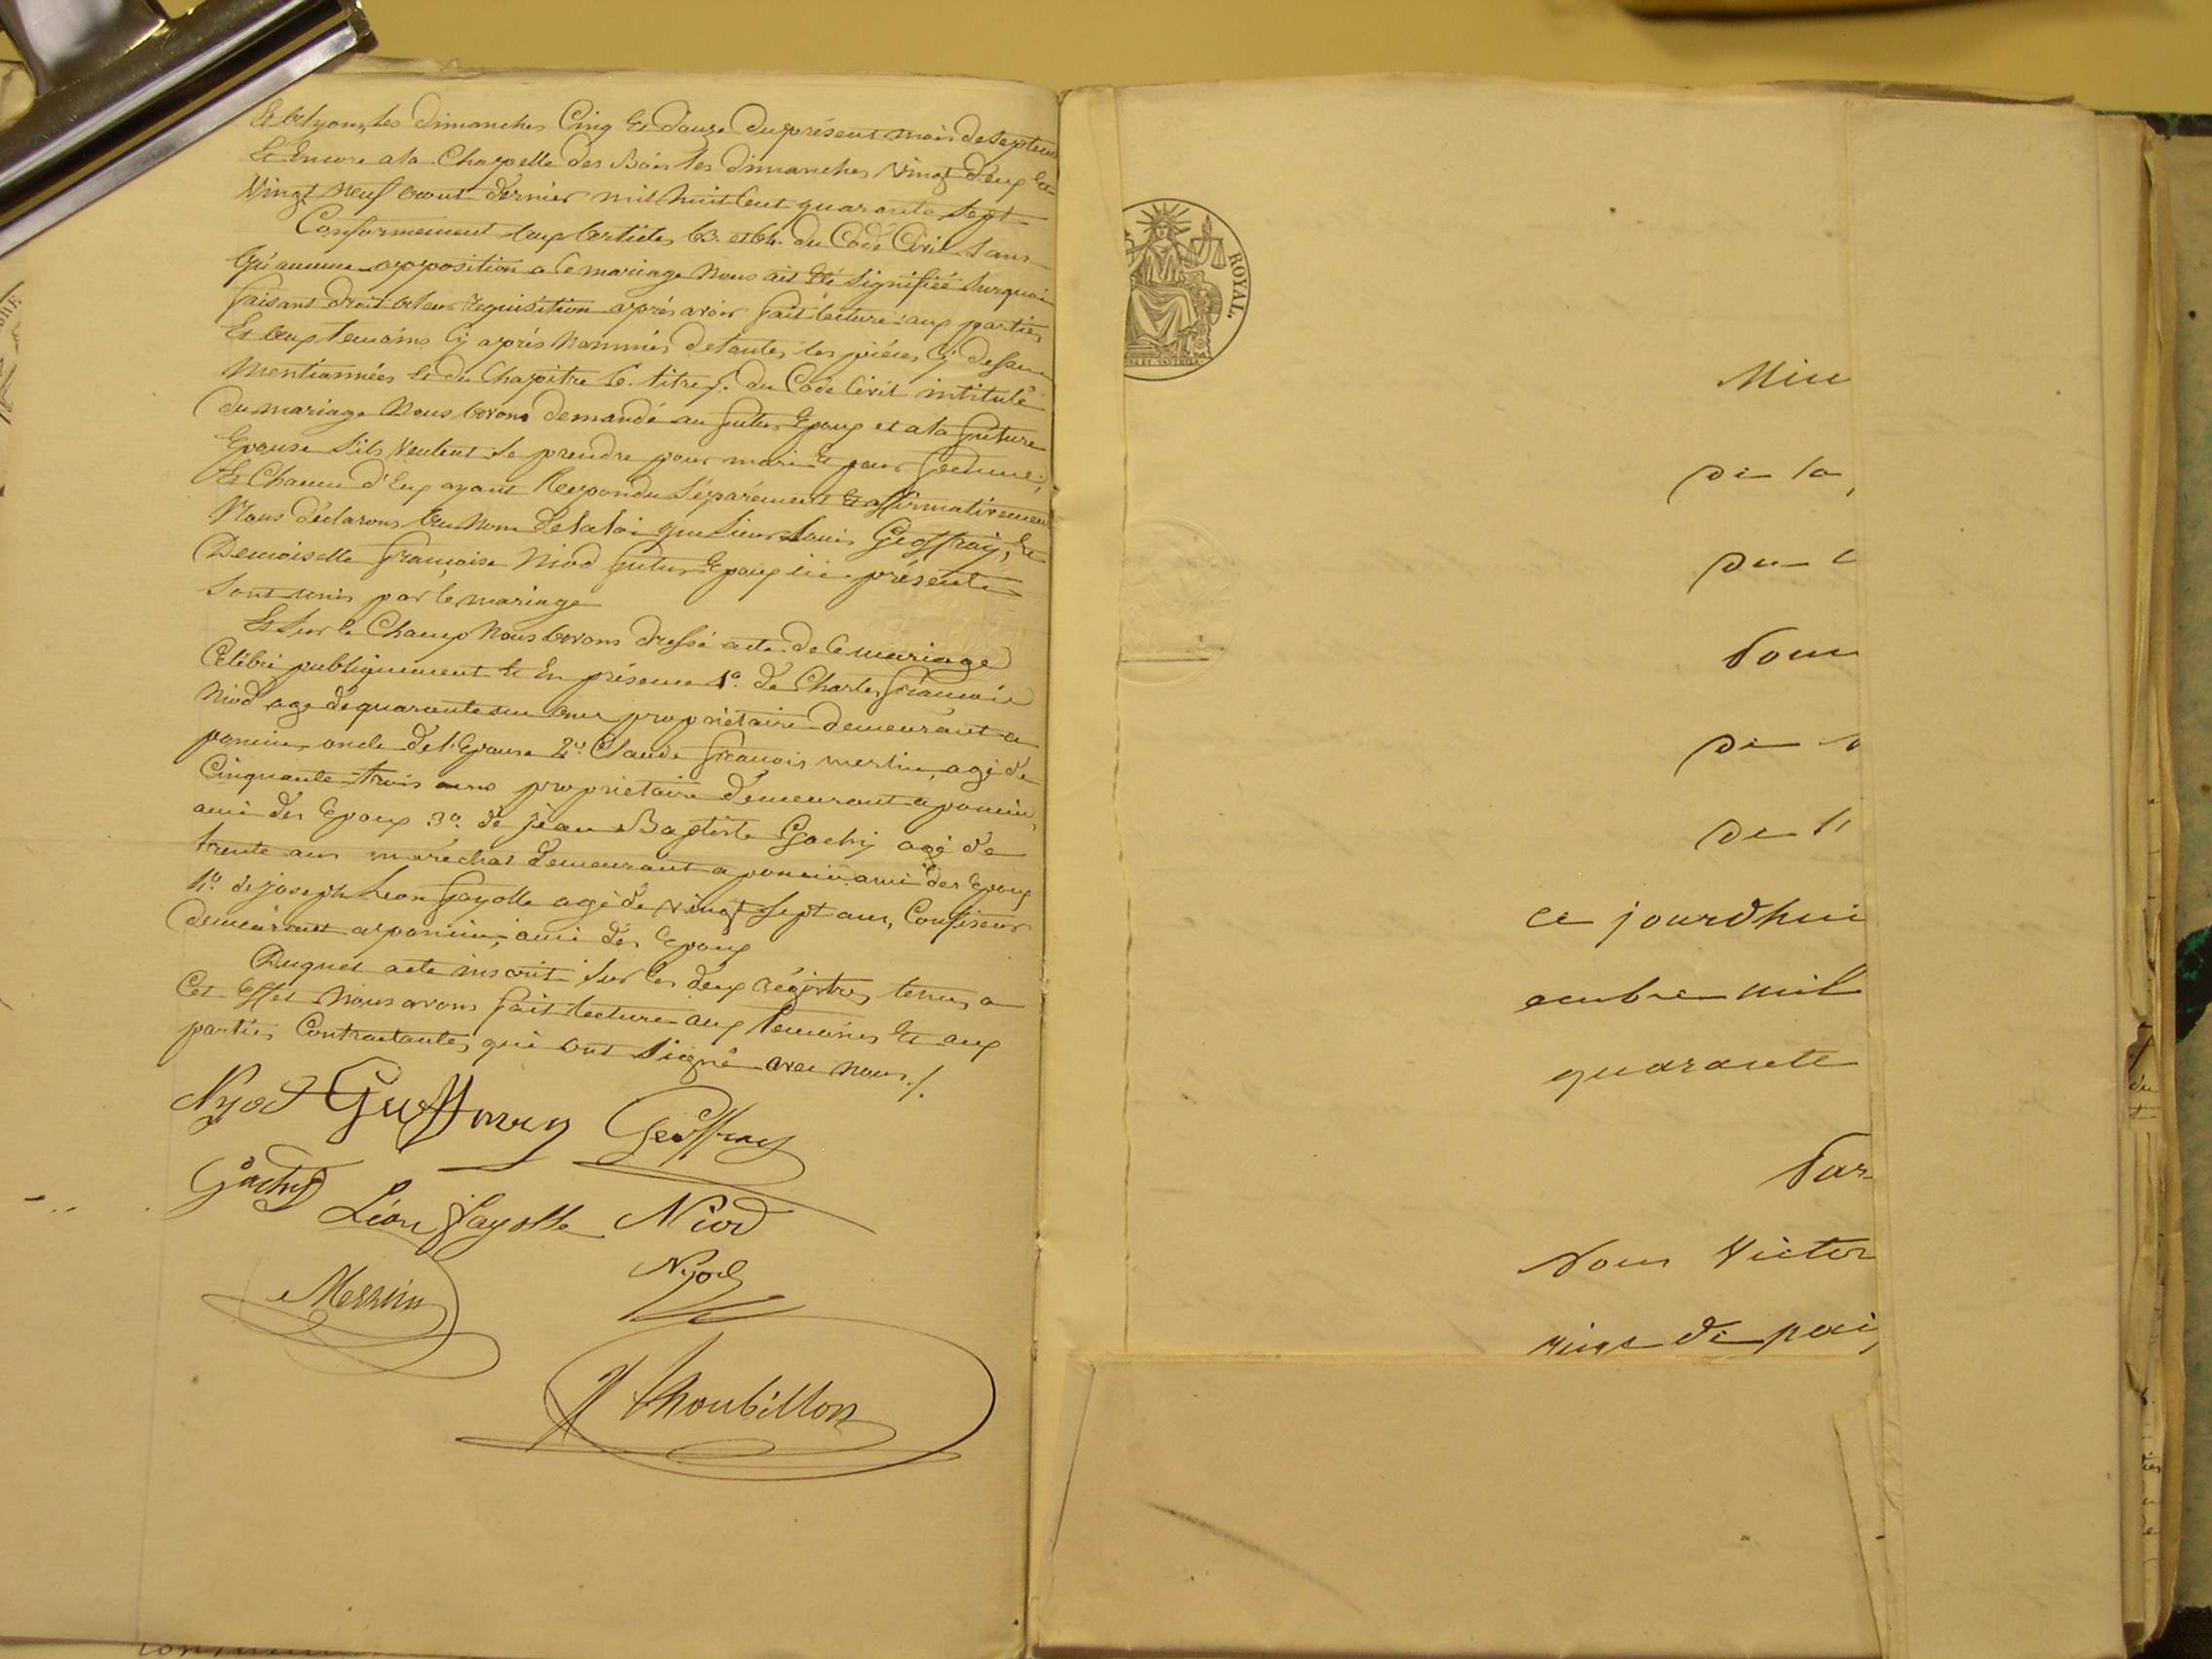 Et a lyon, les dimanches Cinq Et douze du présent mois de septem
Et Encore a la Chapelle des Bois les dimanches vingt deux Et
Vingt neuf aout dernier mil huit Cent quarante Sept
Conformement aux articles 63. et 64. du Code Civil Sans
Qu'aucune opposition a Ce mariage Nous ait Eté Signifiée Surquoi
faisant droit a leur requisition après avoir fait lecture aux parties
Et aux temoins Cy après Nommés de toutes les pièces Cy dessus
Mentionnées Et du Chapitre 6. titre 5. du Code Civil intitulé
du mariage Nous avons demandé au futur Epoux et a la future
Epouse S'ils Veulent Se prendre pour mari Et pour femme,
Et Chacun d'Eux ayant Repondu Séparément Et affirmativement
Nous déclarons au Nom de la loi que Sieur Louis Geoffray, Et
Demoiselle françoise Niod futurs Epoux ici présents
Sont unis par le mariage
Et Sur le Champ Nous avons dressé acte de Ce mariage
Célébré publiquement Et En présence 1º. de Charles françois
Niod agé de quarante un ans propriétaire demeurant a
poncin, oncle de l'Epouse 2º. Claude françois merlin, agé de
Cinquante-trois ans propriétaire demeurant a poncin,
ami des Epoux 3º. de jean Baptiste Gachy agé de
trente ans maréchal demeurant a poncin ami des Epoux
4º. de joseph Leon fayolle agé de vingt Sept ans, Confiseur
demeurant a poncin, ami des Epoux
Duquel acte inscrit Sur les deux régistres tenus a
Cet Effet Nous avons fait lecture aux temoins Et aux
parties Contractantes qui ont Signé avec Nous ./.
Nyod Geoffray Geoffray
Gachy Léon fayolle Niod
Nyod
Thoubillon
ROYAL.
de la
du
de
ce jourdhui
embre mil
quarante
Par
Nous Victor
de paix